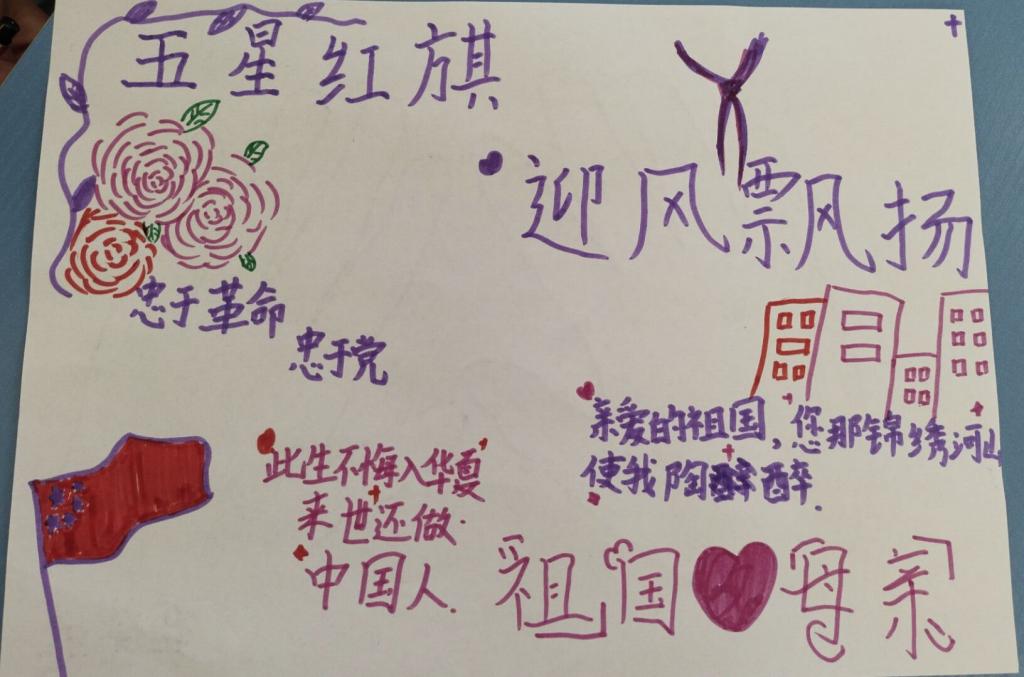 五星红旗
迎风飘扬
忠于革命
忠于党
亲爱的祖国,您那锦绣河山
使我陶醉醉.
此生不悔入华夏
来世还做.
中国人.
祖国母亲